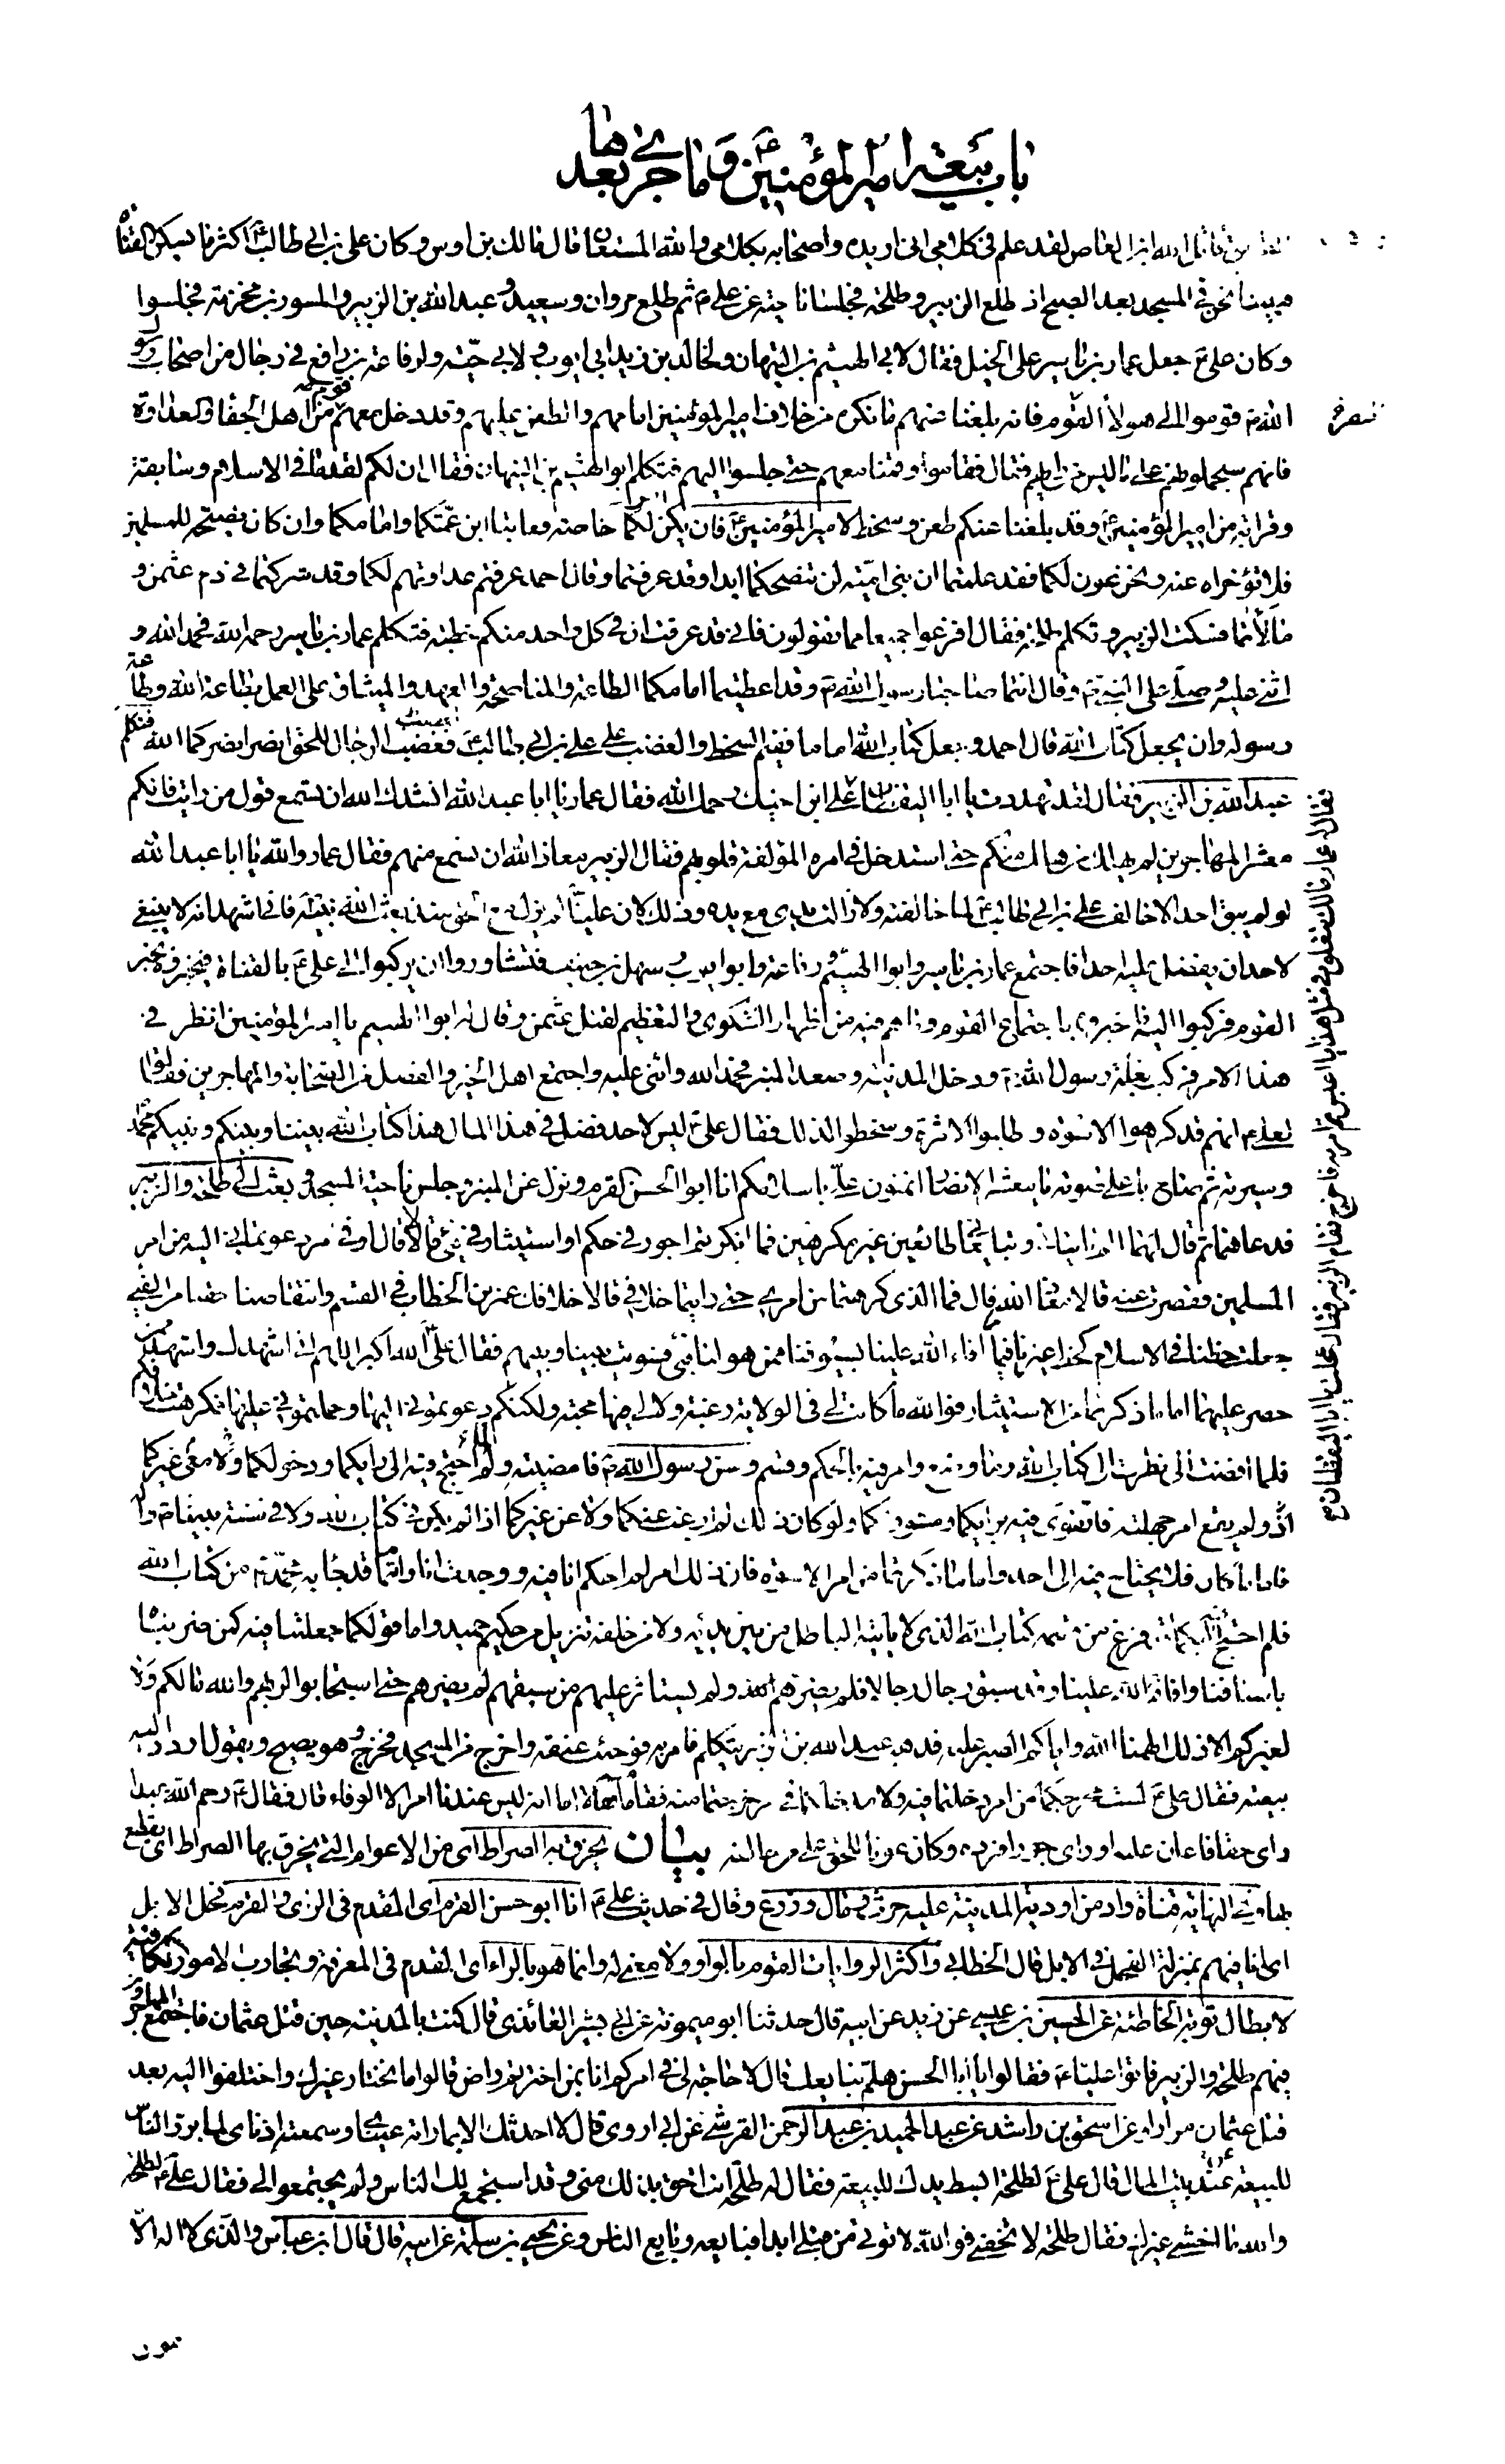 باب بيعة امير المؤمنين ع وما جرى بعدها
العاص لقد علم في كلامي اني اريده واصحابه بكلامي والله المستعان قال مالك بن اوس وكان علي بن ابي طالب ع اكثر ما يسكن القناة
فبينا نحن في المسجد بعد الصبح اذ طلع الزبير وطلحة فجلسا ناحية عن علي ع ثم طلع مروان وسعيد وعبد الله بن الزبير والمسور بن مخرمة فجلسوا
وكان علي ع جعل عمار بن ياسر على الخيل فقال لابي الهيثم بن التيهان ولخالد بن زيد ابي ايوب ولابي حية ولرفاعة بن رافع في رجال من اصحاب رسول
الله ص قوموا الى هؤلاء القوم فانه بلغنا عنهم ما نكره من خلاف امير المؤمنين امامهم والطعن عليهم وقد دخل معهم قوم من اهل الجفا والعداوة
فانهم سيحملونهم على ما ليس من رايهم قال فقاموا وقمنا معهم حتى جلسوا اليهم فتكلم ابو الهيثم بن التيهان فقال ان لكم لقدما في الاسلام وسابقة
وقرابة من امير المؤمنين ع وقد بلغنا عنكم طعن وسخط لامير المؤمنين ع فان يكن لكما خاصة فعاتبا ابن عمتكما وامامكما وان كان نصيحة للمسلمين
فلا تؤخراه عنه ونحن عون لكما فقد علمتما ان بني امية لن تنصحكما ابدا وقد عرفتما وقال احمد عرفتم عداوتهم لكما وقد شركتما في دم عثمن و
مالأتما فسكت الزبير وتكلم طلحة فقال افرغوا جميعا مما تقولون فاني قد عرفت ان في كل واحد منكم خطبة فتكلم عمار بن ياسر رحمه الله فحمد الله و
اثنى عليه وصلى على النبي ص وقال انتما صاحبا رسول الله ص وقد اعطيتما امامكما الطاعة والمناصحة والعهد والميثاق على العمل بطاعة الله وطاعة
رسوله وان يجعل كتاب الله قال احمد وجعل كتاب الله اماما ففيم السخط والغضب على علي بن ابي طالب ع فغضب الرجال للحق انصرا نصركما الله فتكلم
عبد الله بن الزبير فقال لقد تهددت يا ابا اليقظان فقال علي ابن اخيك رحمك الله فقال عمار يا ابا عبد الله انشدك الله ان تسمع قول من رايت فانكم
معشر المهاجرين لم يهلك من هلك منكم حتى استدخل في امره المؤلفة قلوبهم فقال الزبير معاذ الله ان نسمع منهم فقال عمار والله يا ابا عبد الله
لو لم يبق احد الا خالف علي بن ابي طالب ع لما خالفته ولا زالت يدي مع يده وذلك لان عليا لم يزل مع الحق منذ بعث الله نبيه فاني اشهد انه لا ينبغي
لاحد ان يفضل عليه احدا فاجتمع عمار بن ياسر وابو الهيثم ورفاعة وابو ايوب وسهل بن حنيف فتشاوروا ان يركبوا الى علي ع بالقناة فيخبروه بخبر
القوم فركبوا اليه فاخبروه باجتماع القوم وما هم فيه من اظهار الشكوى والتعظيم لقتل عثمن وقال له ابو الهيثم يا امير المؤمنين انظر في
هذا الامر فركب بغلة رسول الله ص ودخل المدينة وصعد المنبر فحمد الله واثنى عليه واجتمع اهل الخير والفضل من الصحابة والمهاجرين فقالوا
لعلي ع انهم قد كرهوا الاسوة وطلبوا الاثرة وسخطوا لذلك فقال علي ع ليس لاحد فضل في هذا المال هذا كتاب الله بيننا وبينكم ونبيكم محمد
وسيرته ثم صاح باعلى صوته يا معشر الانصار اتمنون علي باسلامكم انا ابو الحسن القرم ونزل عن المنبر وجلس ناحية المسجد وبعث الى طلحة والزبير
فدعاهما ثم قال لهما الم تاتياني وتبايعاني طائعين غير مكرهين فما انكرتم اجور في حكم او استيثار في فيء قالا لا قال او في امر دعوتماني اليه من امر
المسلمين فقصرت عنه قالا معاذ الله قال فما الذي كرهتما من امري حتى رايتما خلافي قالا خلافك عمر بن الخطاب في القسم وانتقاصنا حقنا من الفيء
جعلت حظنا في الاسلام كحظ غيرنا فيما افاء الله علينا بسيوفنا ممن هو لنا فيء فسويت بيننا وبينهم فقال علي ع الله اكبر اللهم اني اشهدك واشهد من
حضر عليهما اما ما ذكرتما من الاستيثار فوالله ما كانت لي في الولاية رغبة ولا لي فيها محبة ولكنكم دعوتموني اليها وحملتموني عليها فكرهت خلافكم
فلما افضت الي نظرت الى كتاب الله وما وضع وامر فيه بالحكم وقسم وسن رسول الله ص فامضيته ولم احتج فيه الى رايكما ودخولكما ولا معي غيركما
ولم يقع امر جهلته فاتقوى فيه برايكما ومشورتكما ولو كان ذلك لم ارغب عنكما ولا عن غيركما اذا لم يكن في كتاب الله ولا في سنة نبينا ص
فاما ما كان فلا يحتاج فيه الى احد واما ما ذكرتما من امر الاسوة فان ذلك امر لم احكم انا فيه ووجدت انا وانتما قد جاء به محمد ص من كتاب الله
فلم احتج اليكما قد فرغ من قسمه كتاب الله الذي لا ياتيه الباطل من بين يديه ولا من خلفه تنزيل من حكيم حميد واما قولكما جعلتنا فيه كمن ضربناه
باسيافنا وافاء الله علينا وقد سبق رجال رجالا فلم يضرهم ولم يستاثر عليهم من سبقهم لم يضرهم حتى استجابوا لربهم والله ما لكم ولا
لغيركم الا ذلك الهمنا الله واياكم الصبر عليه فذهب عبد الله بن الزبير يتكلم فامر به فوجئت عنقه واخرج من المسجد فخرج وهو يصيح ويقول اردد اليه
بيعته فقال علي ع لست مخرجكما من امر دخلتما فيه ولا مدخلكما في امر خرجتما منه فقاما عنه فقالا اما انه ليس عندنا امر الا الوفاء قال فقال ع رحم الله عبدا
راى حقا فاعان عليه او راى جورا فرده وكان عونا للحق على من خالفه بيان يخرق به الصراط اي من الاعوام التي يخرق بها الصراط اي يقطع
بها وفي النهاية قناة واد من اودية المدينة عليه حرث ومال وزرع وقال في حديث علي ع انا ابو حسن القرم اي المقدم في الراي والقرم فحل الابل
اي انا فيهم بمنزلة الفحل في الابل قال الخطابي واكثر الروايات القوم بالواو ولا معنى له وانما هو بالراء اي المقدم في المعرفة وتجارب الامور
لابطال توبة الخاطئة عن الحسين بن عيسى عن زيد عن ابيه قال حدثنا ابو ميمونة عن ابي بشر العائذي قال كنت بالمدينة حين قتل عثمان فاجتمع المهاجرون
فيهم طلحة والزبير فاتوا عليا ع فقالوا يا ابا الحسن هلم نبايعك قال لا حاجة لي في امركم انا بمن اخترتم راض قالوا ما نختار غيرك واختلفوا اليه بعد
قتل عثمان مرارا وعن اسحق بن راشد عن عبد الحميد بن عبد الرحمن القرشي عن ابي اروى قال لا احدثك الا بما راته عيناي وسمعته اذناي لما برز الناس
للبيعة عند بيت المال قال علي ع لطلحة ابسط يدك للبيعة فقال له طلحة انت احق بذلك مني وقد استجمع لك الناس ولم يجتمعوا لي فقال علي ع لطلحة
والله ما اخشى غيرك فقال طلحة لا تخشني فوالله لا تؤتى من قبلي ابدا فبايعه وبايع الناس وعن يحيى بن سلمة عن ابيه قال قال ابن عباس والذي لا اله الا